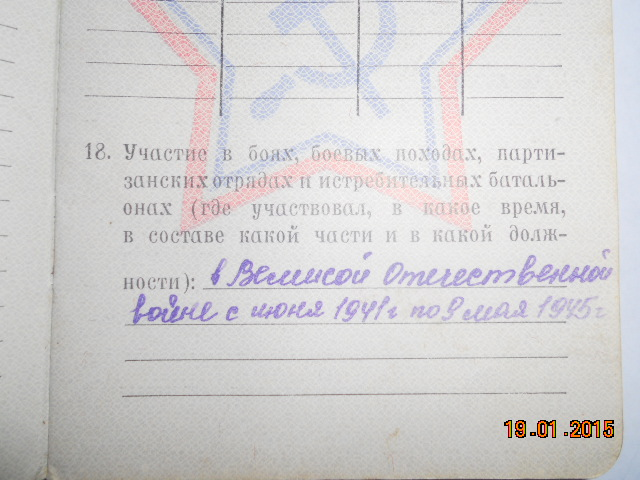 18. Участие в боях, боевых походах, парти-
занских отрядах и истребительных баталь-
онах (где участвовал, в какое время,
в составе какой части и в какой долж-
ности): в Великой Отечественной
войне с июня 1941г по 9 мая 1945г
19.01.2015